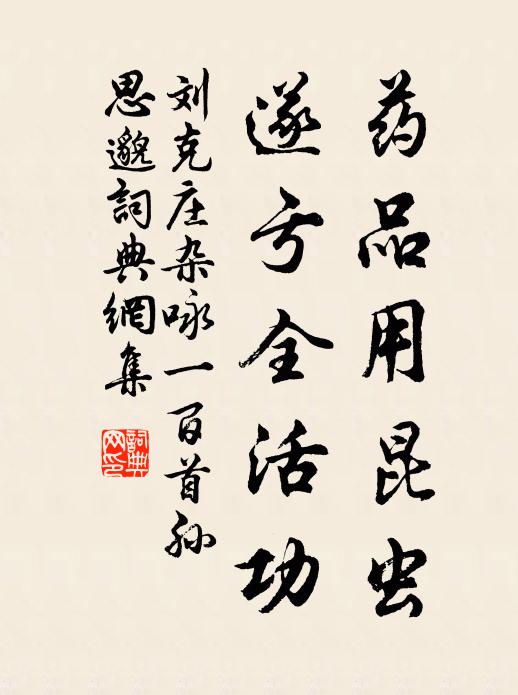 药品用昆虫
遂亏全活功
刘克庄杂咏一百首孙
思邈詞典網集
詞典
网印